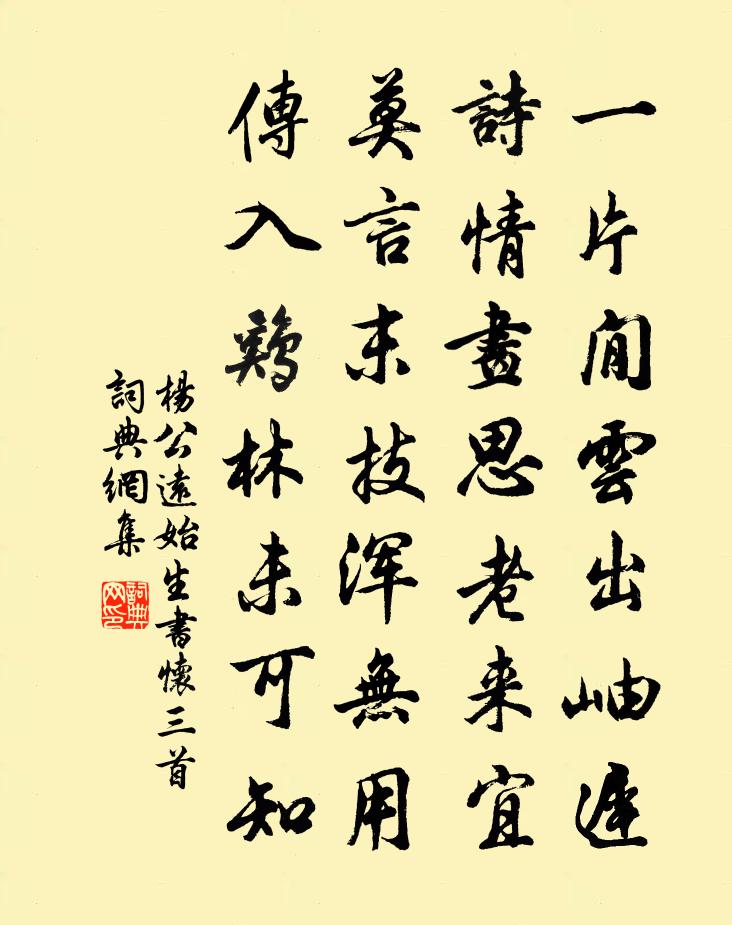 一片閒雲出岫遲
詩情畫思老来宜
莫言末技浑無用
傳入鷄林未可知
楊公遠始生書懷三首
詞典網集
詞典
网印